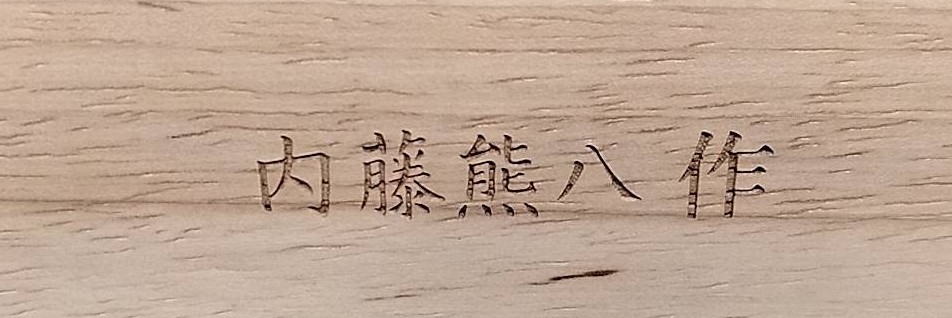 内藤熊八 作